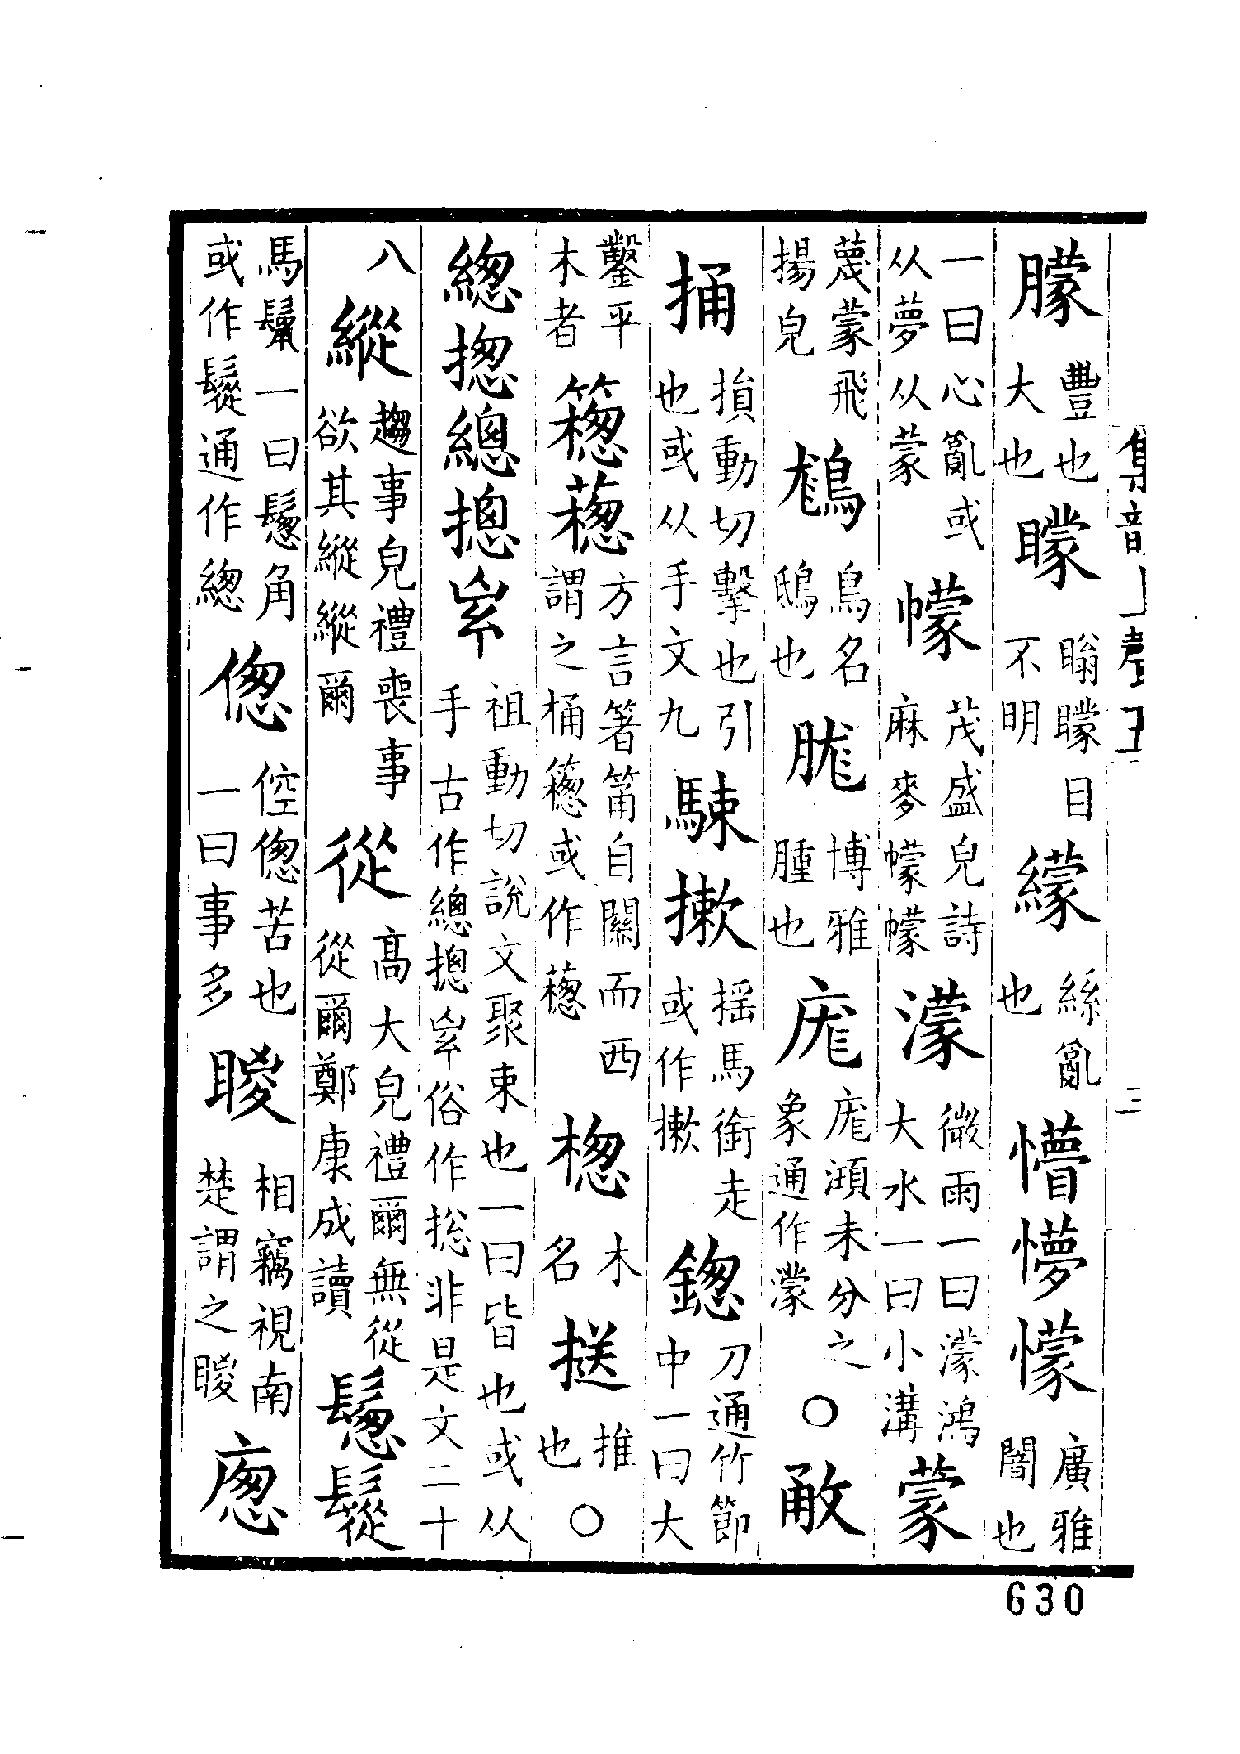 集韻上聲五　三
朦豐也大也矇瞈矇目不明繓絲亂也懵懜懞廣雅闇也
一曰心亂或从夢从蒙幪茂盛皃詩麻麥幪幪濛微雨一曰濛鴻大水一曰小溝蒙
蔑蒙飛揚皃鳥名鴟也胧博雅腫也庬庬澒未分之象通作濛〇㪌
捅損動切擊也引也或从手文九駷摗搖馬銜走或作摗鍯刀通竹節中一曰大
鑿平木者䈡蔥方言箸筩自關而西謂之桶䈡或作蔥楤木名㨑推也〇
緫揔總摠祖動切說文聚束也一曰皆也或从手古作總摠俗作捴非是文二十
八縱趨事皃禮喪事欲其縱縱爾從高大皃禮爾無從從爾鄭康成讀鬉
馬鬣一曰鬉角或作通作緫偬倥偬苦也一曰事多䁓相竊視南楚謂之䁓
630